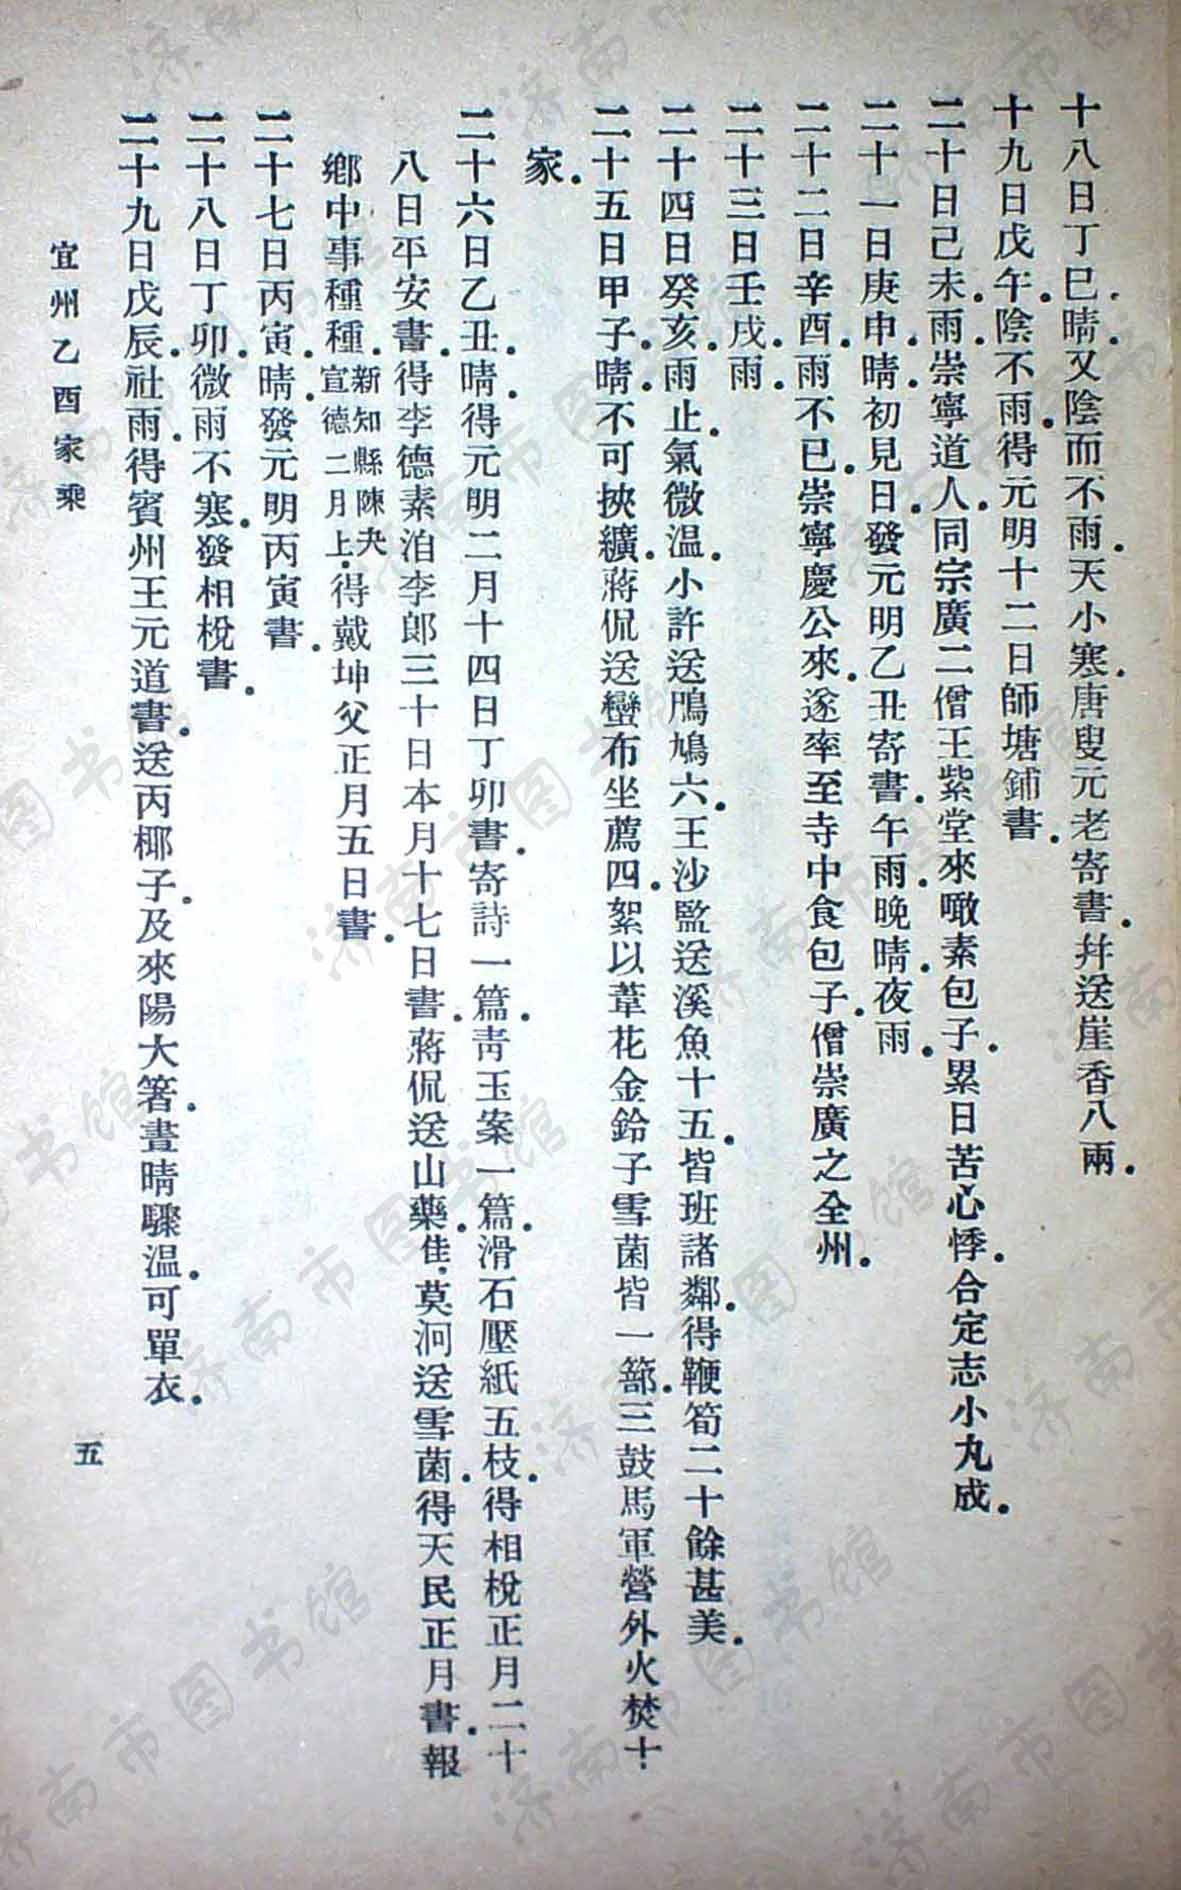 十八日丁巳晴又陰而不雨天小寒唐叟元老寄書幷送崖香八兩
十九日戊午陰不雨得元明十二日師塘鋪書
二十日己未雨崇寧道人同宗廣二僧王紫堂來噉素包子累日苦心悸合定志小丸成
二十一日庚申晴初見日發元明乙丑寄書午雨晚晴夜雨
二十二日辛酉雨不已崇寧慶公來遂率至寺中食包子僧崇廣之全州
二十三日壬戌雨
二十四日癸亥雨止氣微温小許送鴘鳩六王沙監送溪魚十五皆班諸鄰得鞭筍二十餘甚美
二十五日甲子晴不可挾纊蔣侃送蠻布坐薦四絮以葦花金鈴子雪菌皆一篰三鼓馬軍營外火焚十
家
二十六日乙丑晴得元明二月十四日丁卯書寄詩一篇靑玉案一篇滑石壓紙五枝得相梲正月二十
八日平安書得李德素洎李郞三十日本月十七日書蔣侃送山藥佳莫洞送雪菌得天民正月書報
鄉中事種種新知縣陳夬宣德二月上得戴坤父正月五日書
二十七日丙寅晴發元明丙寅書
二十八日丁卯微雨不寒發相梲書
二十九日戊辰社雨得賓州王元道書送丙椰子及來陽大箸晝晴驟温可單衣
宜州乙酉家乘
五
济南市图书馆